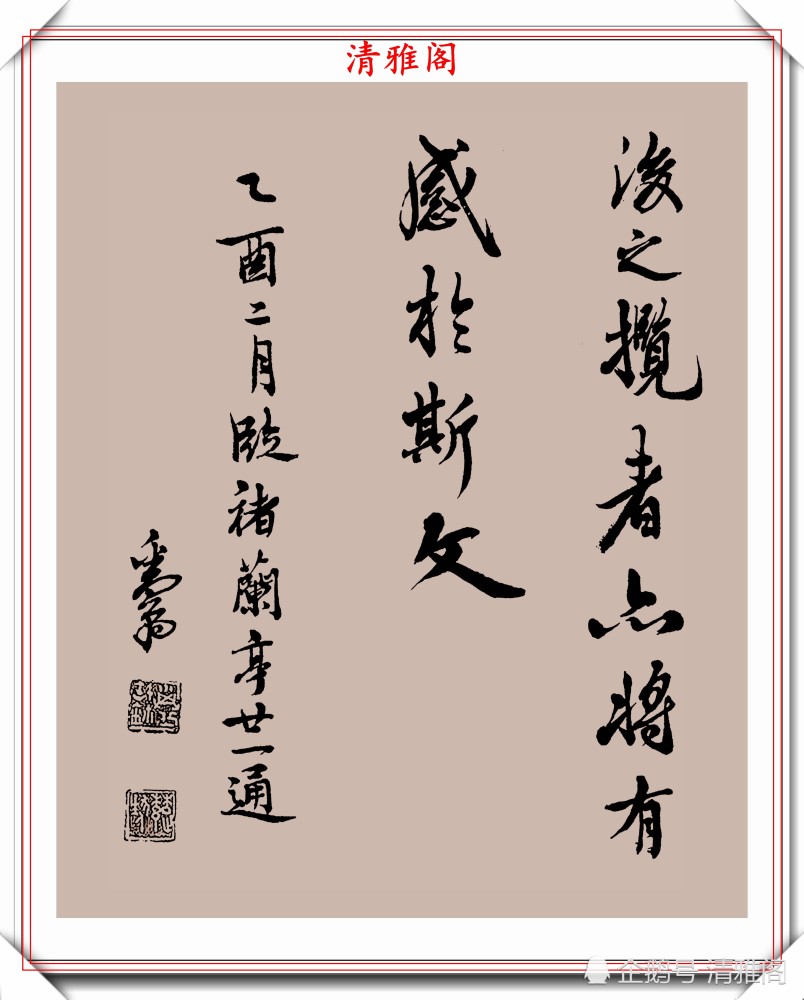 清雅阁
后之揽者亦将有
感於斯文
乙酉二月临褚蘭亭廿一通
企鹅号 清雅阁